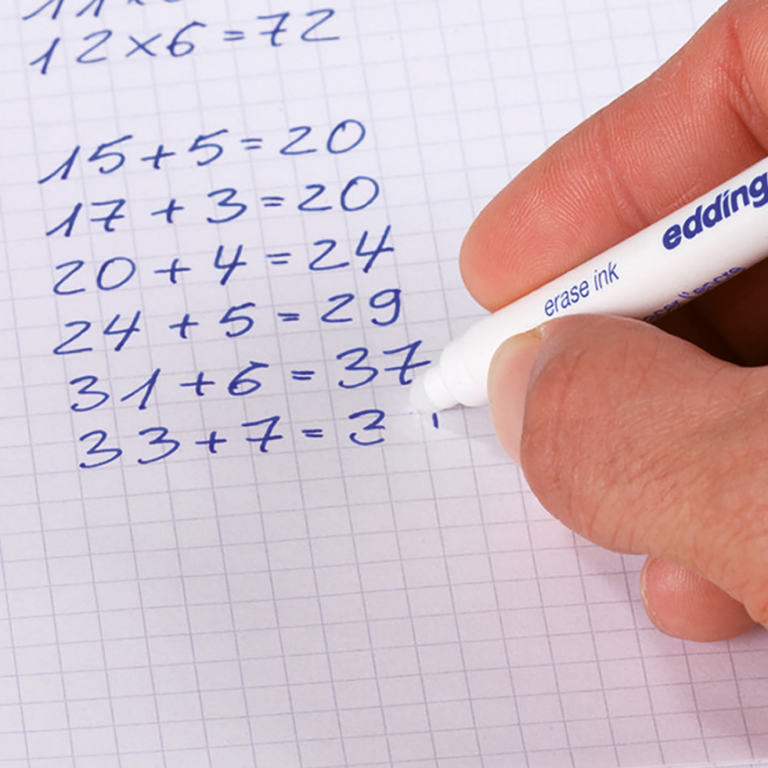 12×6=72
15+5=20
17+3=20
20+4=24
24+5=29
31+6=37
33+7=3
edding
erase ink